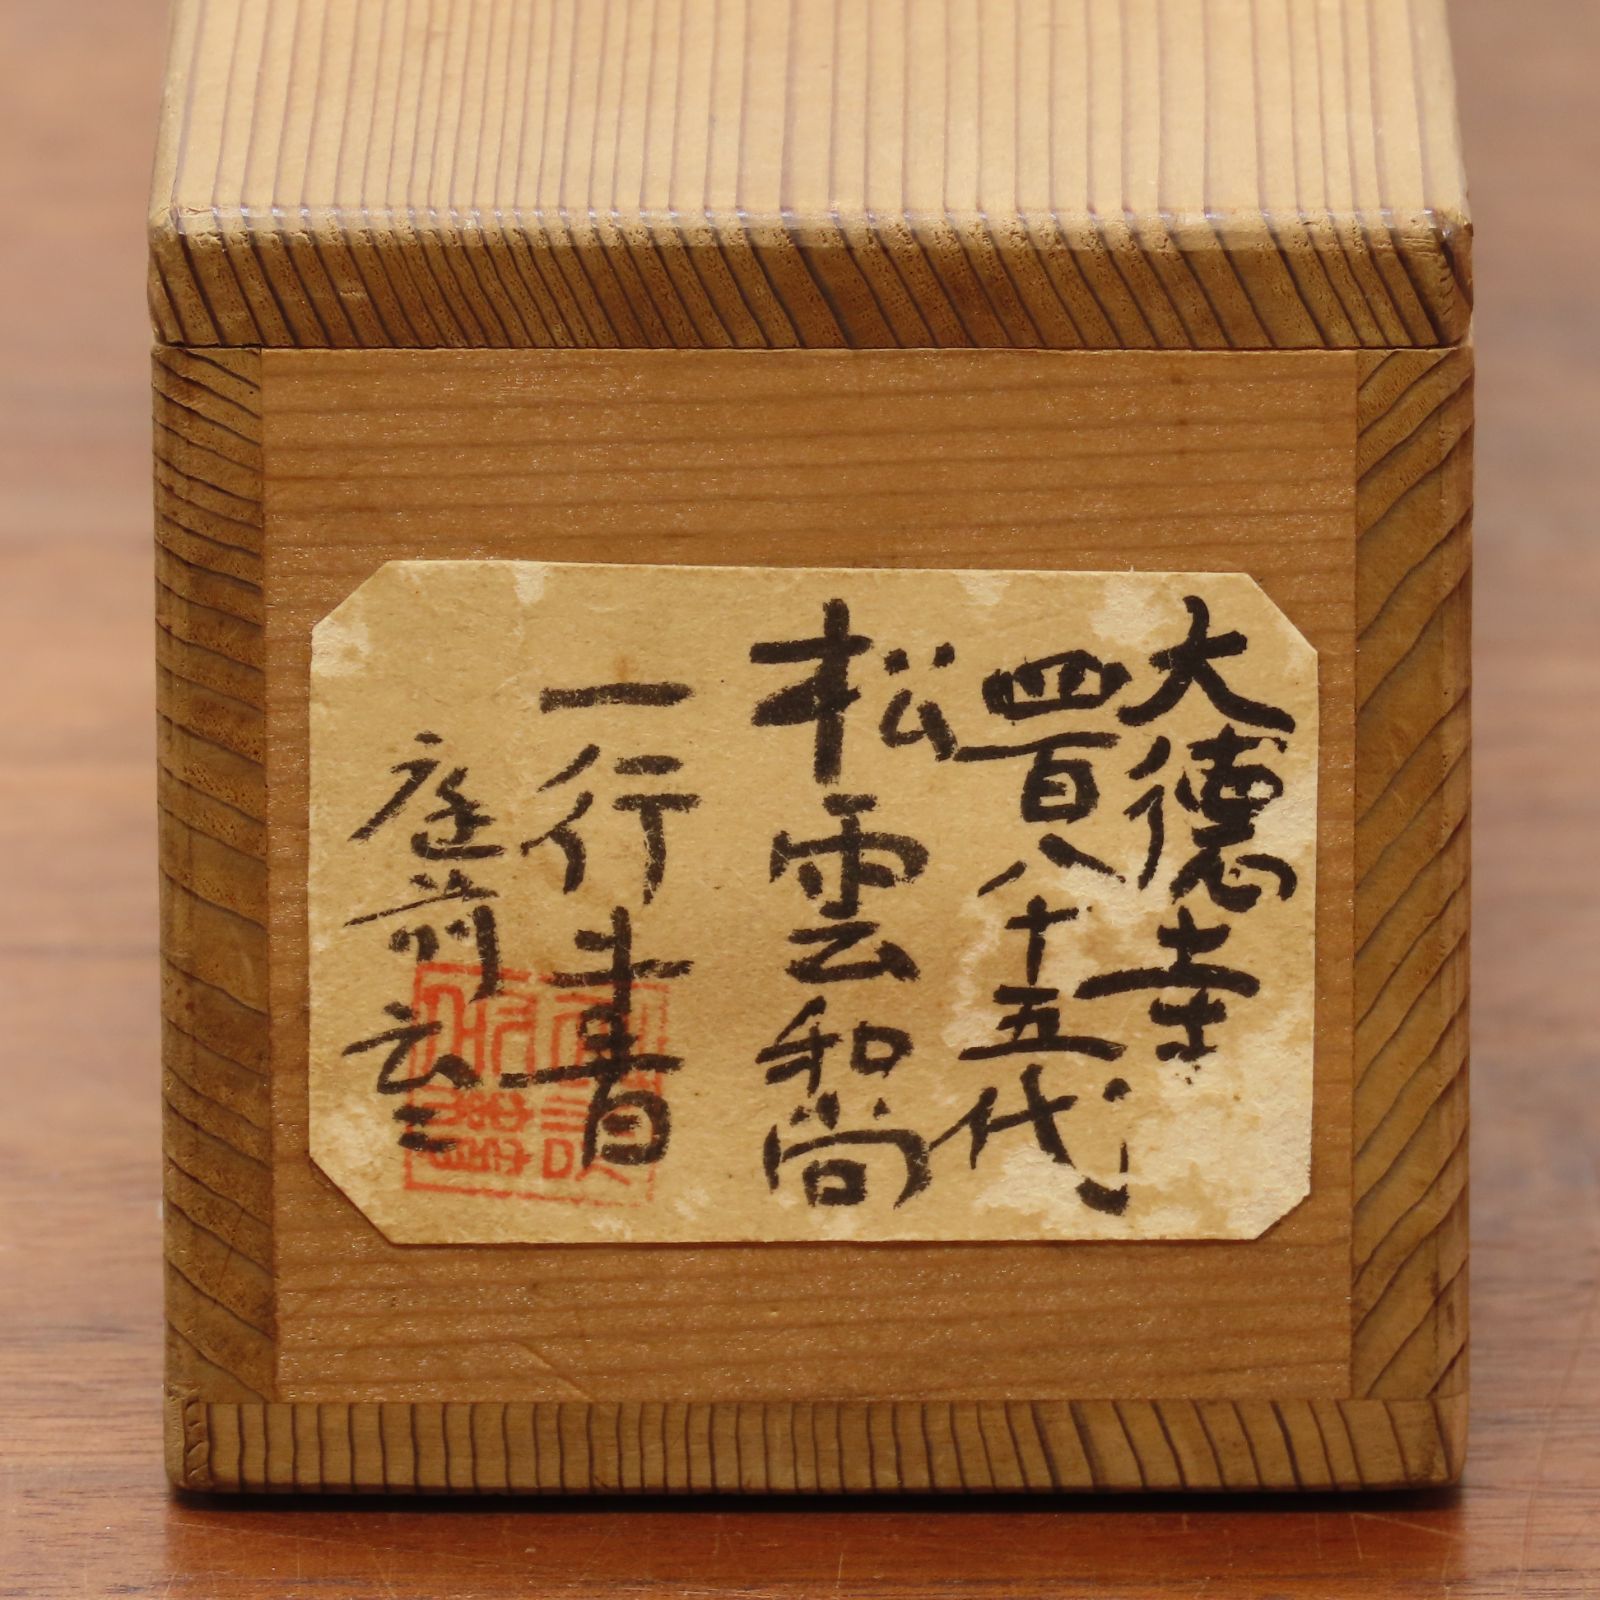 大徳寺
四百八十五代
松雲和尚
一行書
庭前云々